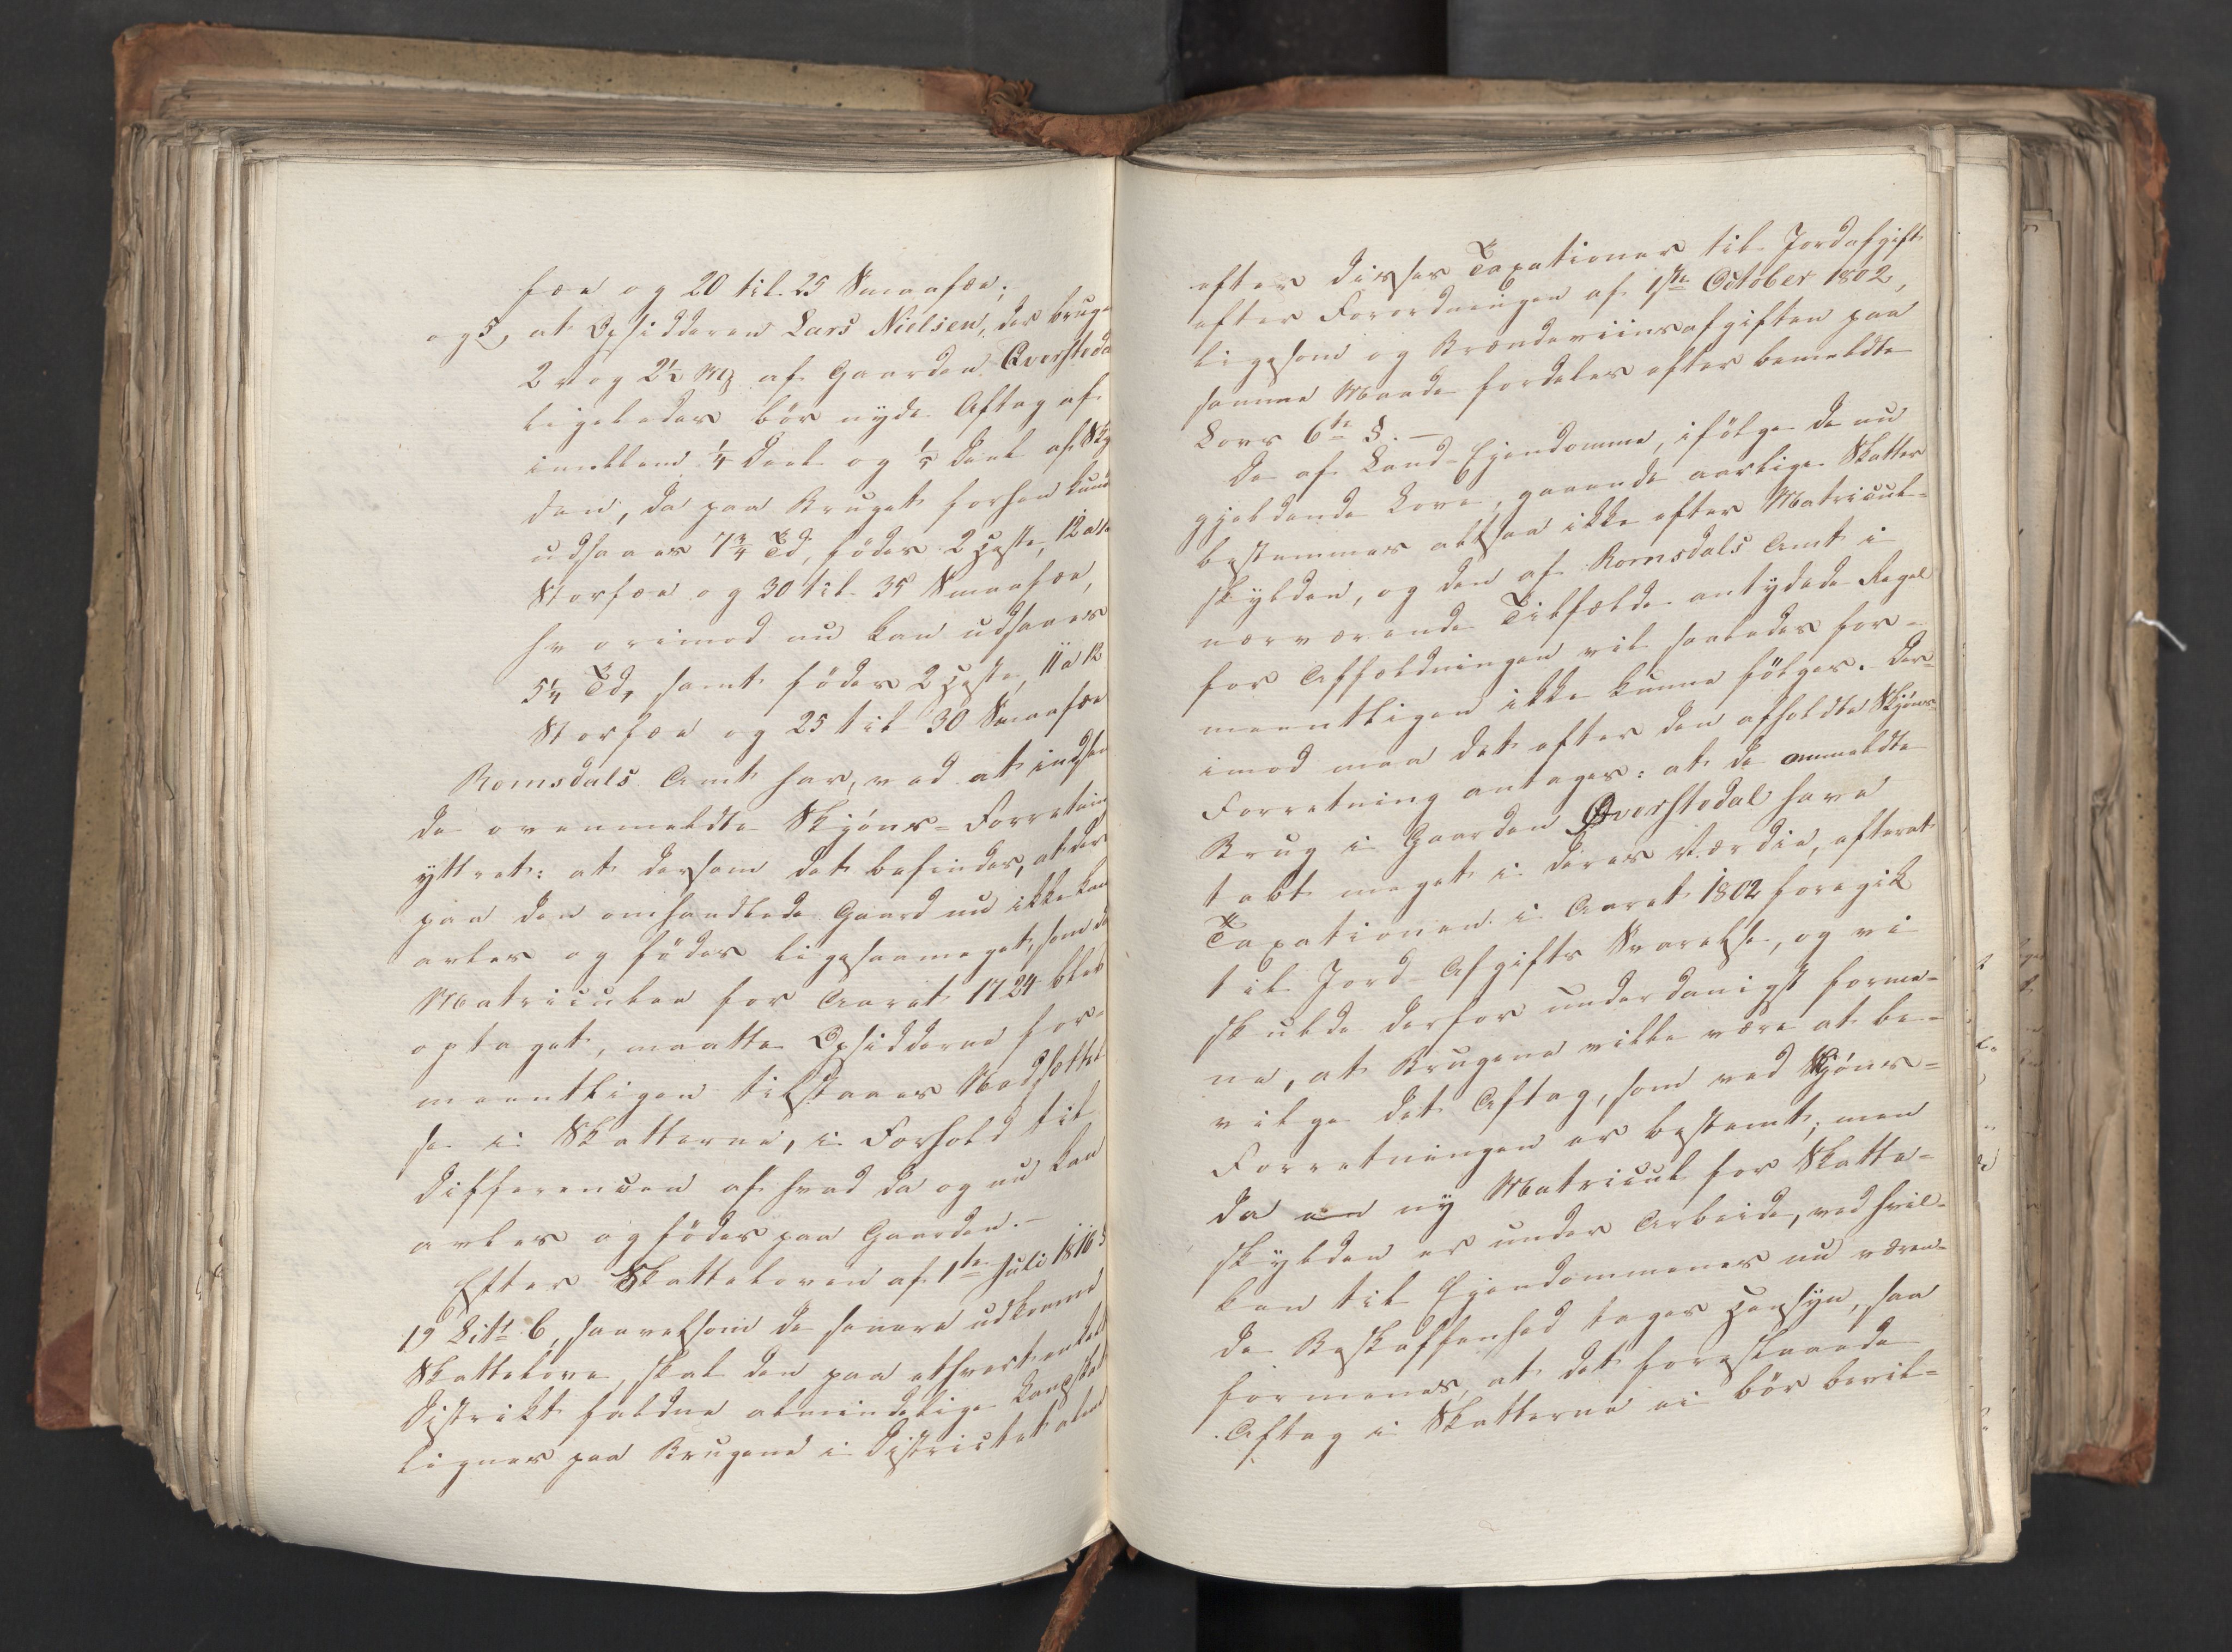 fæe og 20 til 25 Smaafæe;
og 5, at Opsidderen Lars Nielsen, der bruge
2 v og 2½ Mk af Gaarden Øverstedal
ligeledes bör nyde Aftag af
imellem ¼ Deel og ⅕ Deel af Sky
den, da paa Bruget forhen kund
udsaaes 7¾ Td, födes 2 Heste, 12 a 14
Storfæe og 30 til 35 Smaafæe,
hvorimod nu kan udsaaes
5¼ Td, samt födes 2 Heste, 11 a 12
Storfæe og 25 til 30 Smaafæe
Romsdals Amt har, ved at indsen
de ovenmeldte Skjöns-Forretning
yttret: at dersom det befindes, at der
paa den omhandlede Gaard nu ikke kan
avles og födes ligesaameget, som da
Matriculen for Aaret 1724 blev
optaget, maatte Opsidderne for-
meentligen tilstaaes Nedsættel
se i Skatterne, i Forhold til
Differencen af hvad da og nu kan
avles og födes paa Gaarden.-
Efter Skatteloven af 1te Juli 1816 §
19 Litt b, saavelsom de senere udkomne
Skattelove, skal den paa ethvert enkelt
District faldne almindelige Landskat
lignes paa Brugene i Districtet alene
efter disses Taxationer til Jordafgift
efter Forordningen af 1ste October 1802,
ligesom og Brændeviinsafgiften paa
samme Maade fordeles efter bemeldte
Lovs 6te §.-
De af Land-Ejendomme, ifölge de nu
gjeldende Love, gaaende aarlige Skatter
bestemmes altsaa ikke efter Matricul-
skylden, og den af Romsdals Amt i
nærværende Tilfælde antydede Regel
for Affældningen vil saaledes for-
meentligen ikke kunne fölges. Der-
imod maa det efter den afholdte Skjöns-
Forretning antages: at de ommeldte
Brug i Gaarden Øverstedal have
tabt meget i deres Værdie, efterat
Taxationen i Aaret 1802 foregik
til Jord-Afgifts Svarelse, og vi
skulde derfor underdanigst forme-
ne, at Brugene ville være at be-
vilge det Aftag, som ved Skjöns-
Forretningen er bestemt; men
da en ny Matricul for Skatte-
skylden er under Arbeide, ved hvil-
ken til Ejendommenes nu væren-
de Beskaffenhed tages Hensyn, saa
formenes, at det forestaaende
Aftag i Skatterne ei bör bevil-